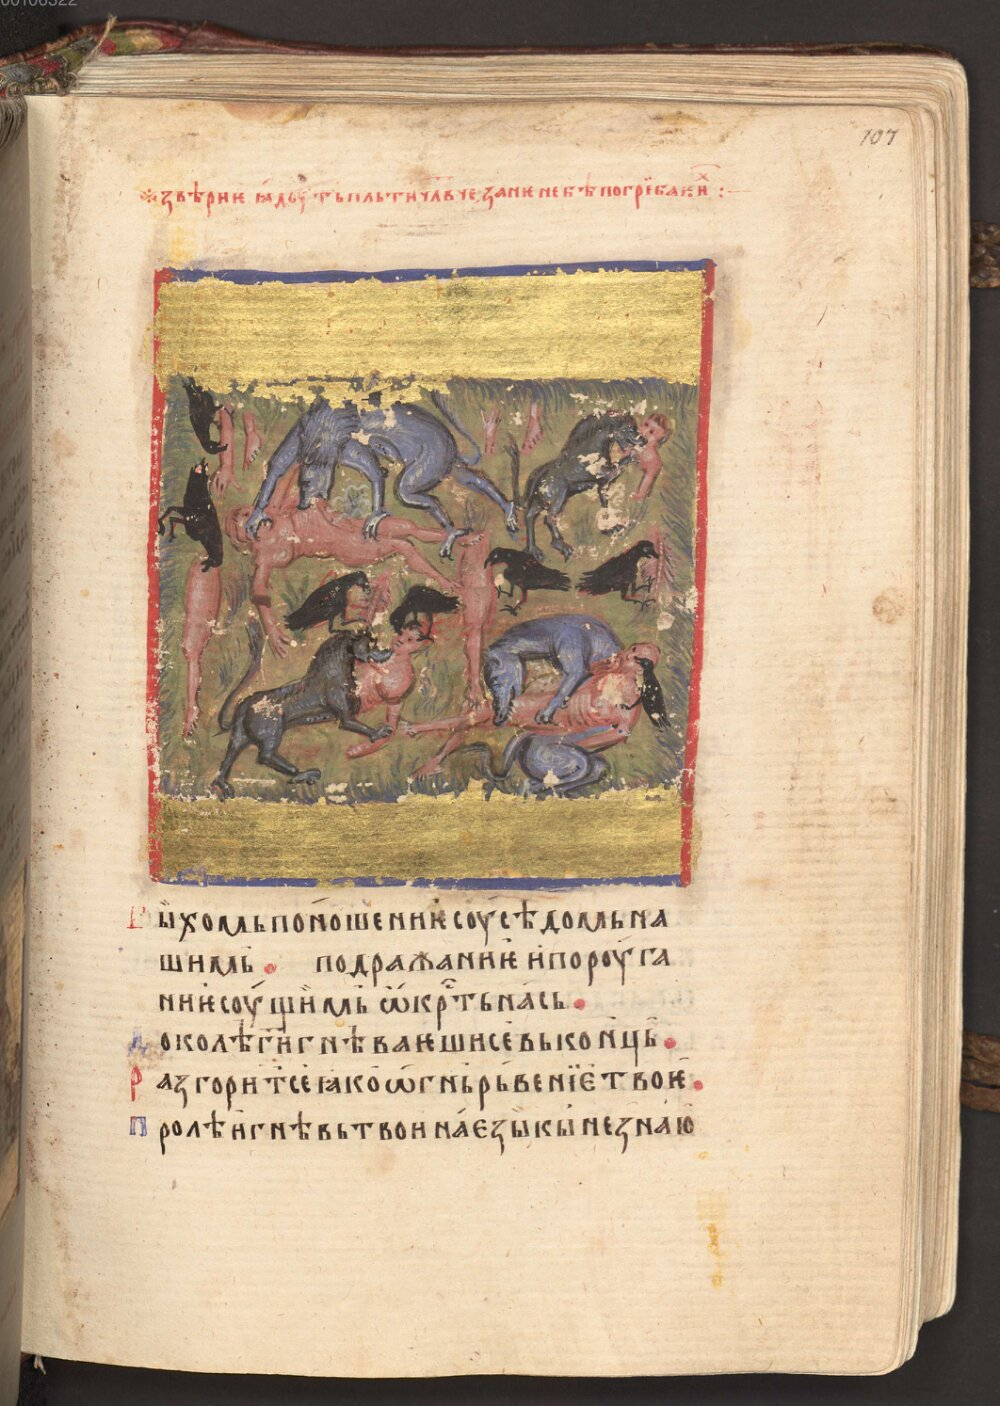 00106322
107
звѣрине ꙗдоуть пльти чл҃вчезани не бѣ погрѣбаѥи :
Быхомь поношениѥ соусѣдомь на
шимь. подражаниѥ и пороуга
ниѥ соущимь ѡкр҃ть нась.
Доколѣ г҃и гнѣваѥшисе вь коньць.
Разгоритсе ꙗко ѡгнь рьвениѥ твоѥ.
Пролѣи гнѣвь твои на ѥзыкы не знаю